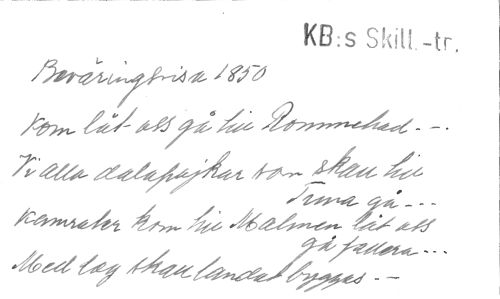 KB:s Skill.-tr.
Beväringsvisa 1850
Kom låt oss gå till Rommehed - -
Vi alla dalapojkar som skall till
Tuna gå - - -
Kamrater kom till Malmen låt oss
gå fallera - - -
Med lag skall landet byggas - -